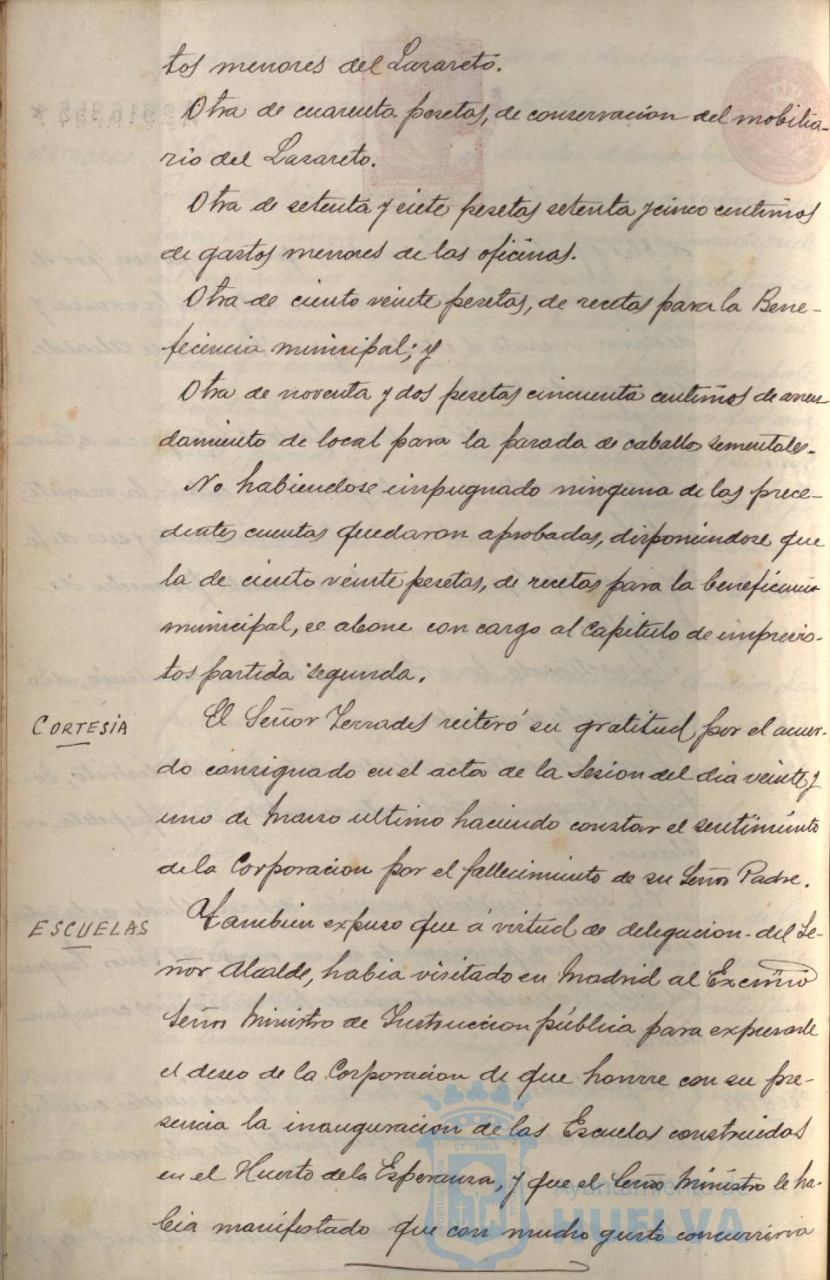 tos menores del Lazareto.
Otra de cuarenta pesetas, de conservacion del mobilia-
rio del Lazareto.
Otra de setenta y siete pesetas setenta y cinco centimos
de gastos menores de las oficinas.
Otra de ciento veinte pesetas, de recetas para la Bene-
ficencia municipal; y
Otra de noventa y dos pesetas cincuenta centimos de arren-
damiento de local para la parada de caballos sementales.
No habiendose impugnado ninguna de las prece-
dentes cuentas quedaron aprobadas, disponiendose que
la de ciento veinte pesetas, de recetas para la beneficencia
municipal, se abone con cargo al Capitulo de imprevis-
tos partida segunda.
CORTESÍA
El Señor Terrades reiteró su gratitud por el acuer-
do consignado en el acta de la Sesion del dia veinte y
uno de Marzo ultimo haciendo constar el sentimiento
de la Corporacion por el fallecimiento de su Señor Padre.
ESCUELAS
Tambien expuso que á virtud de delegacion del Se-
ñor Alcalde, habia visitado en Madrid al Excmo
Señor Ministro de Instruccion pública para expresarle
el deseo de la Corporacion de que honre con su pre-
sencia la inauguracion de las Escuelas construidas
en el Huerto de la Esperanza, y que el Señor Ministro le ha-
bia manifestado que con mucho gusto concurriria
Ayuntamiento de
HUELVA